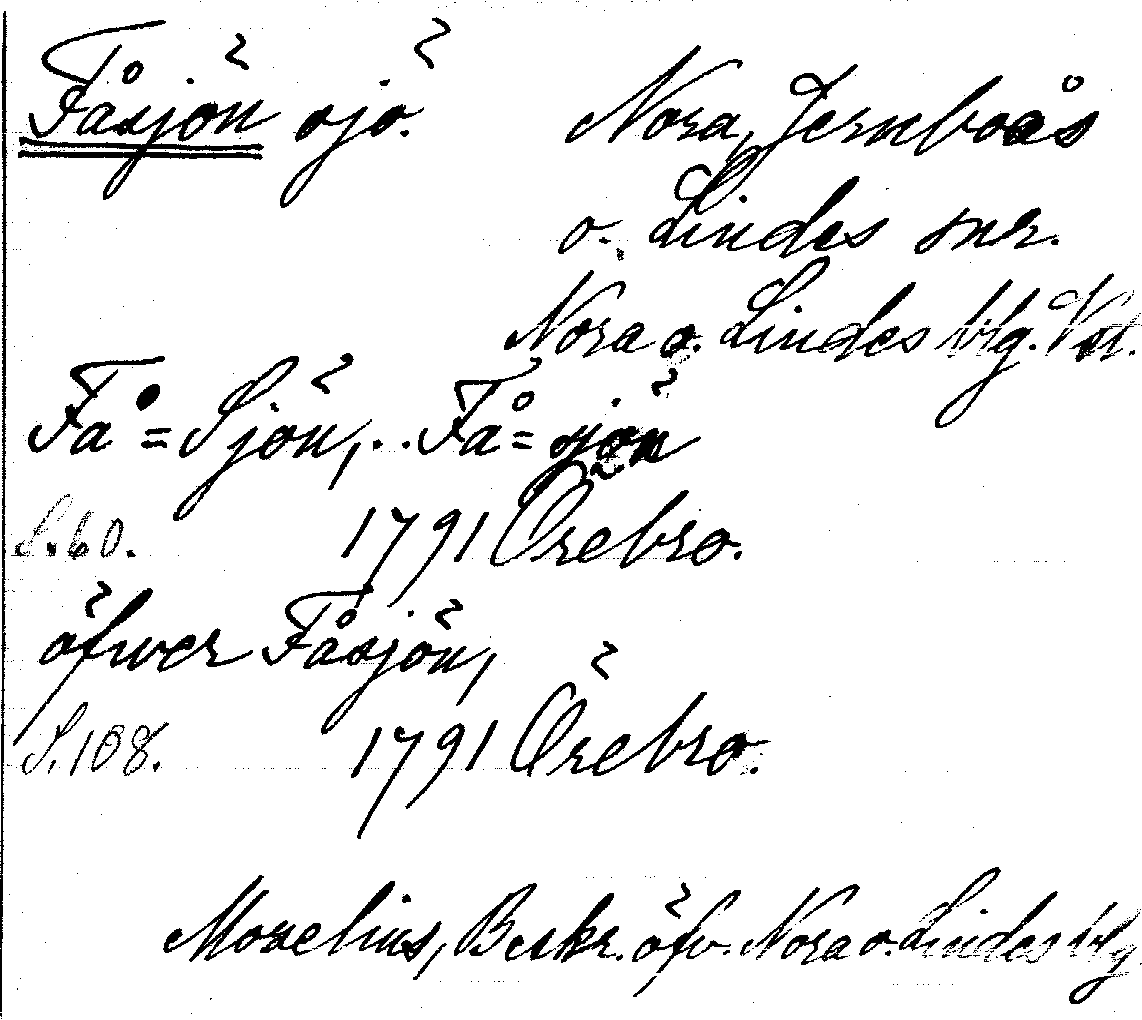 Fåsjön sjö. Nora, Jernboås
o. Lindes snr.
Nora o. Lindes blg. Vstl.
Få=Sjön,.. Få=sjön
S.60. 1791 Örebro.
öfwer Fåsjön,
S.108. 1791 Örebro.
Morelius, Beskr. öfv. Nora o. Lindes blg